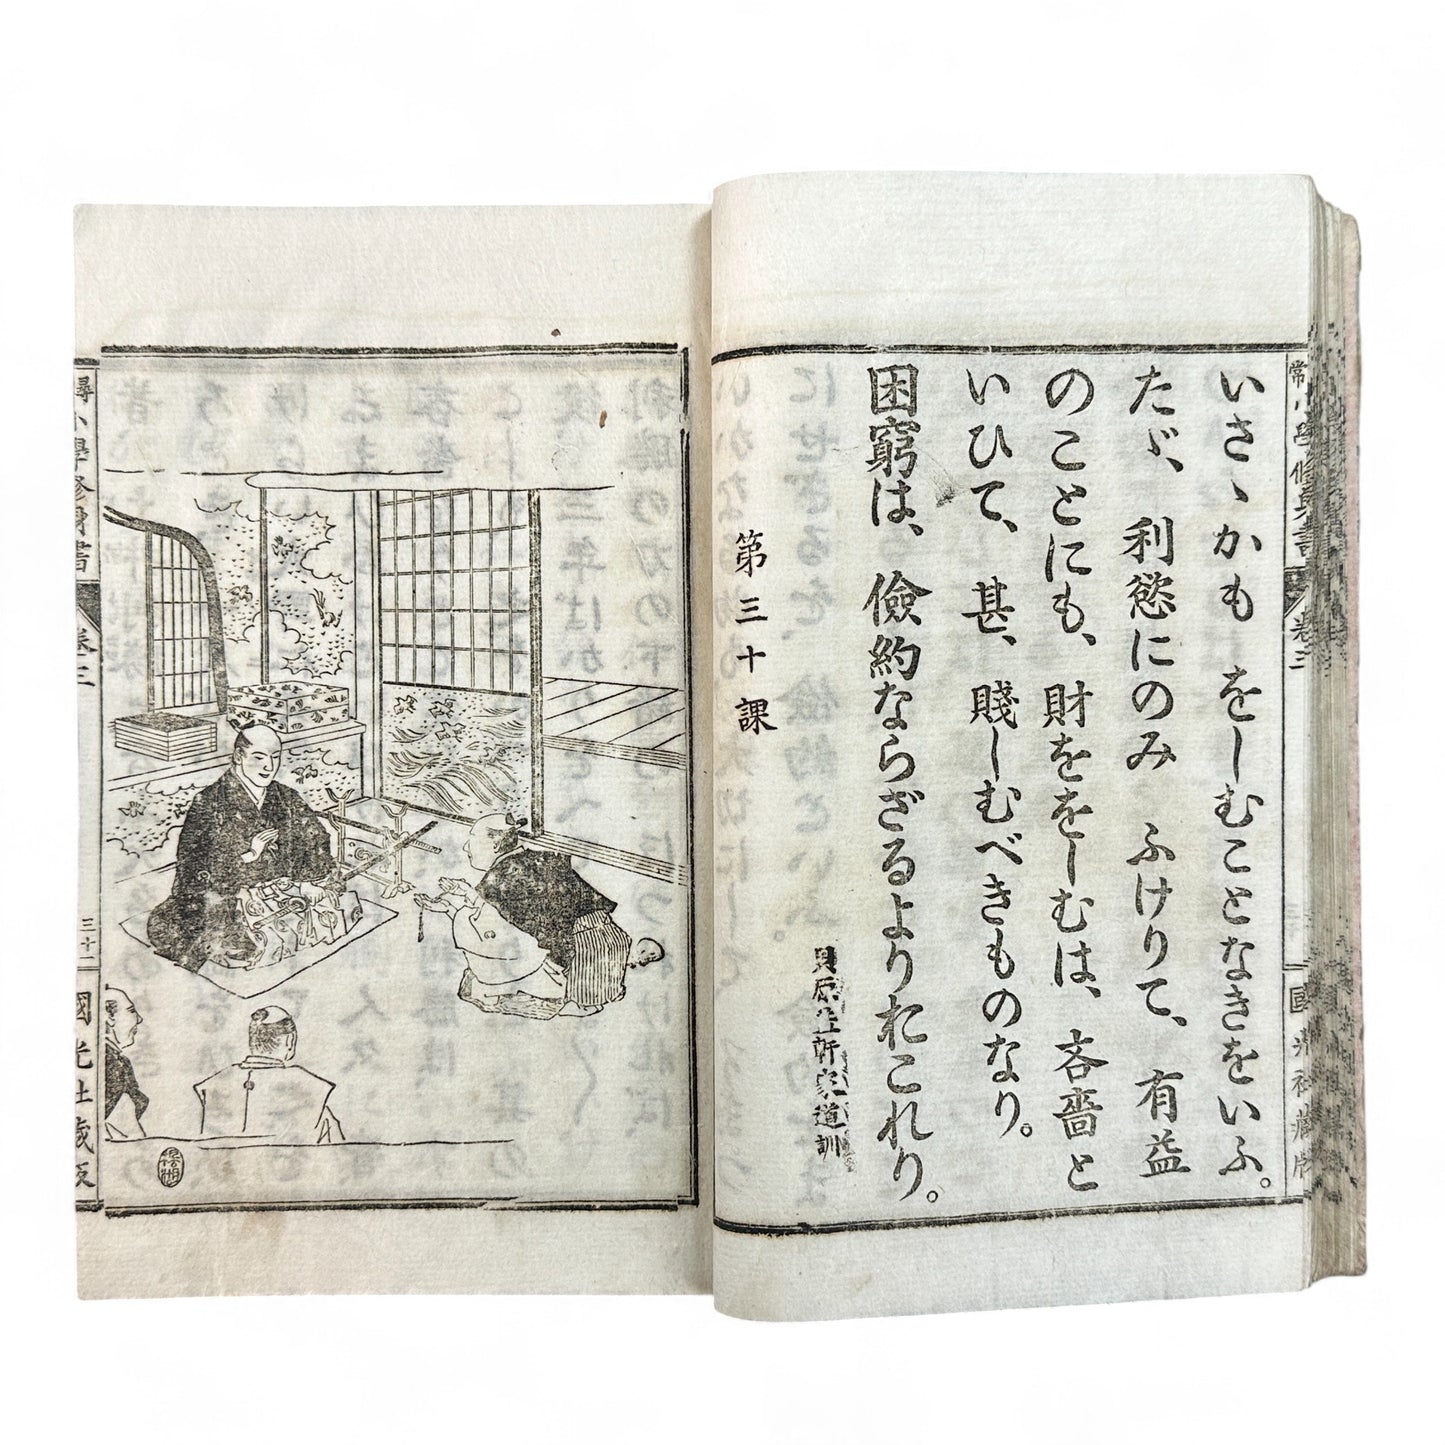 いさゝかも をしむことなきをいふ。
たゞ、利慾にのみ ふけりて、有益
のことにも、財ををしむは、吝嗇と
いひて、甚、賤しむべきものなり。
困窮は、儉約ならざるよりおこれり。
貝原益軒家道訓
第三十課
尋常小學修身書 卷三 三十二 國光社藏版